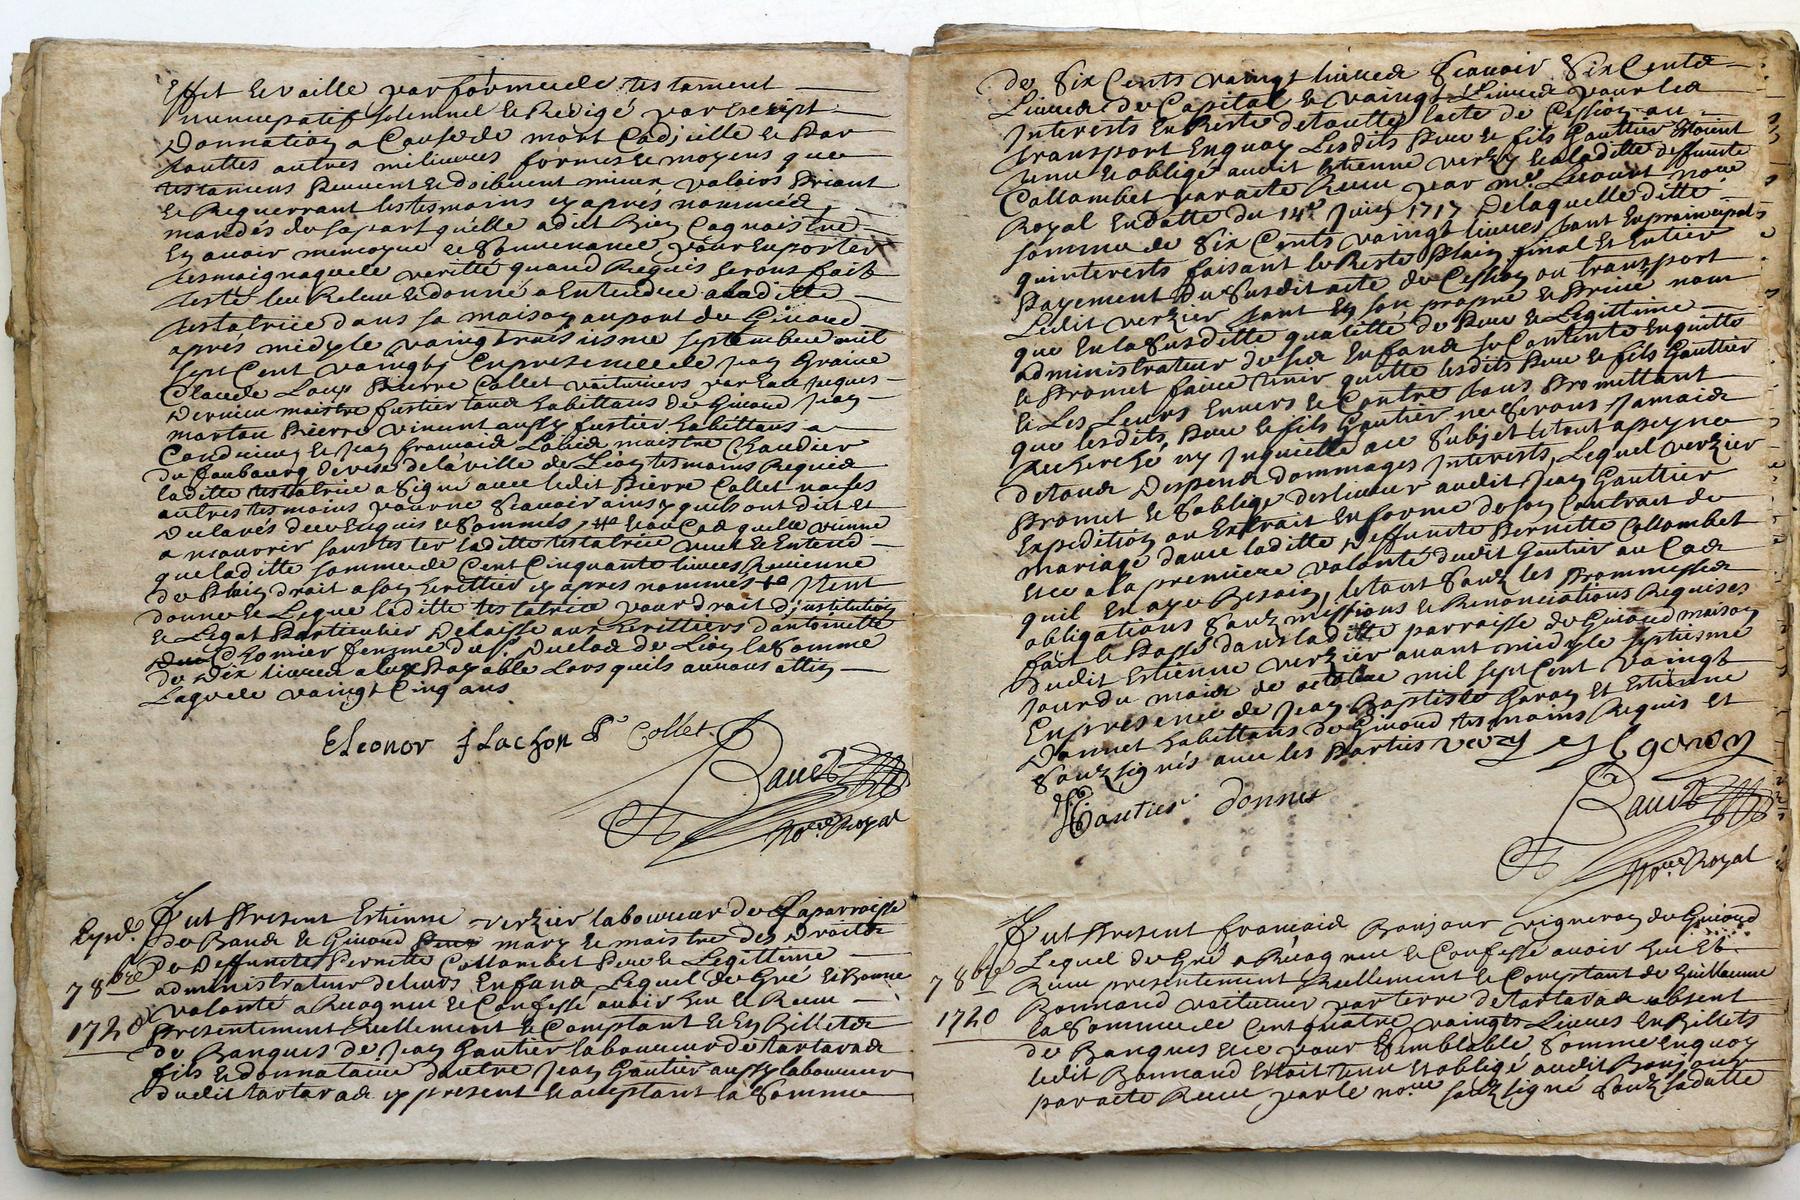 Effet et vaille par forme de testament
nuncupatif solemnel et Redigé par escript
Donnation a Cause de mort Codicille et Par
touttes autres milieures formes et moyens que
testamens Peuvent et doibvent mieux valoirs Priant
et Requerrant les tesmoins cy apres nommés
mandés de sa part quelle a dit Bien Cognoistre
En avoir memoyre et Souvenance pour En porter
tesmoignage de verité quand Requis serons fait
leu Releu et donné a Entendre a laditte
testatrice dans sa maison au port de Givord
apres midy le vaingt troisiesme septembre mil
sept Cent vaingt En presence de Jean Graine
Claude Laux Pierre Collet voituriers par Eau Jacques
Dernieu maistre fustier tous habittans de Givord Jean
martau Pierre vincent aussy fustier habittans a
Condrieu et Jean francois maistre Chaudier
du faubourg de veze de la ville de Lion tesmoins Requis
laditte testatrice a Signé avec ledit Pierre Collet non les
autres tesmoins pour ne Scavoir ainsy quils ont dit et
Declarés de ce Enquis et Sommés et au Cas quelle vienne
a mourir sans tester laditte testatrice veut et Entend
que laditte somme de Cent Cinquante livres Revienne
de Plain droit a son heritier cy apres nommés Item
donne et Legue laditte testatrice pour droit d'institution
et Legat Particulier Delaisse aux heritiers d'antoinette
Chomier femme du Sr Duclos de Lion la Somme
de Dix livres a Eux Payable Lors quils auront attein
Laage de vaingt Cinq ans
Eleonor flachon P Collet
Baud
Nore Royal
Eyd.
7 8bre
1720
fut Present Estienne verzier laboureur de la parroisse
De Bans et Givord mary et maistre des Droits
De Deffuncte Pernette Collombet Pere et Legittime
administrateur de leurs Enfans Lequel de Gré et Bonne
volonté a Recognu et Confesse avoir heu et Receu
Presentement Reellement et Comptant et En Billets
de Banques de Jean Gautier laboureur de tartaras
fils et donnataire d'autre Jean Gautier aussy laboureur
dudit tartaras cy present et acceptant la Somme
de Six Cents vaingt livres Scavoir Six Cents
Livres de Capital et vaingt Livres pour les
Interests En Reste de toutte l'acte de Cession ou
transport Enquoy Lesdits Pere et fils Gautier Etoient
tenu et obligé audit Estienne verzier et a laditte deffuncte
Collombet par acte Receu par me nore
Royal En datte du 14e Juin 1717 De laquelle ditte
somme de Six Cents vaingt livres tant En principal
quinterests faisant le Reste Plain final Et Entier
Payement du Susdit acte de Cession ou transport
Ledit verzier tant En son propre et Privé nom
que En la Susditte qualitté de Pere et Legittime
administrateur de ses Enfans se Contente En quitte
et Promet faire tenir quitte lesdits Pere et fils Gautier
et Les Leurs Envers et Contre tous Promettant
que lesdits Pere et fils Gautier ne Serons Jamais
Recherché ny Inquietté a ce Subjet le tout a peyne
de tous Despens dommages Interests, Lequel verzier
Promet et Soblige deslivrer audit Jean Gautier
Expedition ou Extrait En forme de son Contrait de
mariage d'avec laditte Deffuncte Pernette Collombet
Et ce a la premiere volonté dudit Gautier au Cas
quil En aye Besoin, le tout Souz les Prommesses
obligations Soubmissions et Renonciations Requises
fait et Passé dans laditte parroisse de Givord maison
dudit Estienne verzier avant midy le septiesme
jour du mois de octobre mil sept Cent vaingt
En presence de Jean Baptiste Garon Et Estienne
Donnet habittans de Givord tesmoins Requis et
Souz signés avec les Parties
Gautier donnet
Baud
Nore Royal
7 8bre
1720
fut Present francois Bonjour vigneron de Givord
Lequel de Gré a Recognu et Confesse avoir heu Et
Receu presentement Reellement et Comptant de Guillaume
Bonnand voiturier par terre de tartaras absent
la Somme de Cent quatre vaingts Livres En Billets
de Banques Et ce pour Semblable Somme Enquoy
ledit Bonnand Etoit tenu Et obligé audit Bonjour
par acte Receu par le nore souz signé Souz sa datte